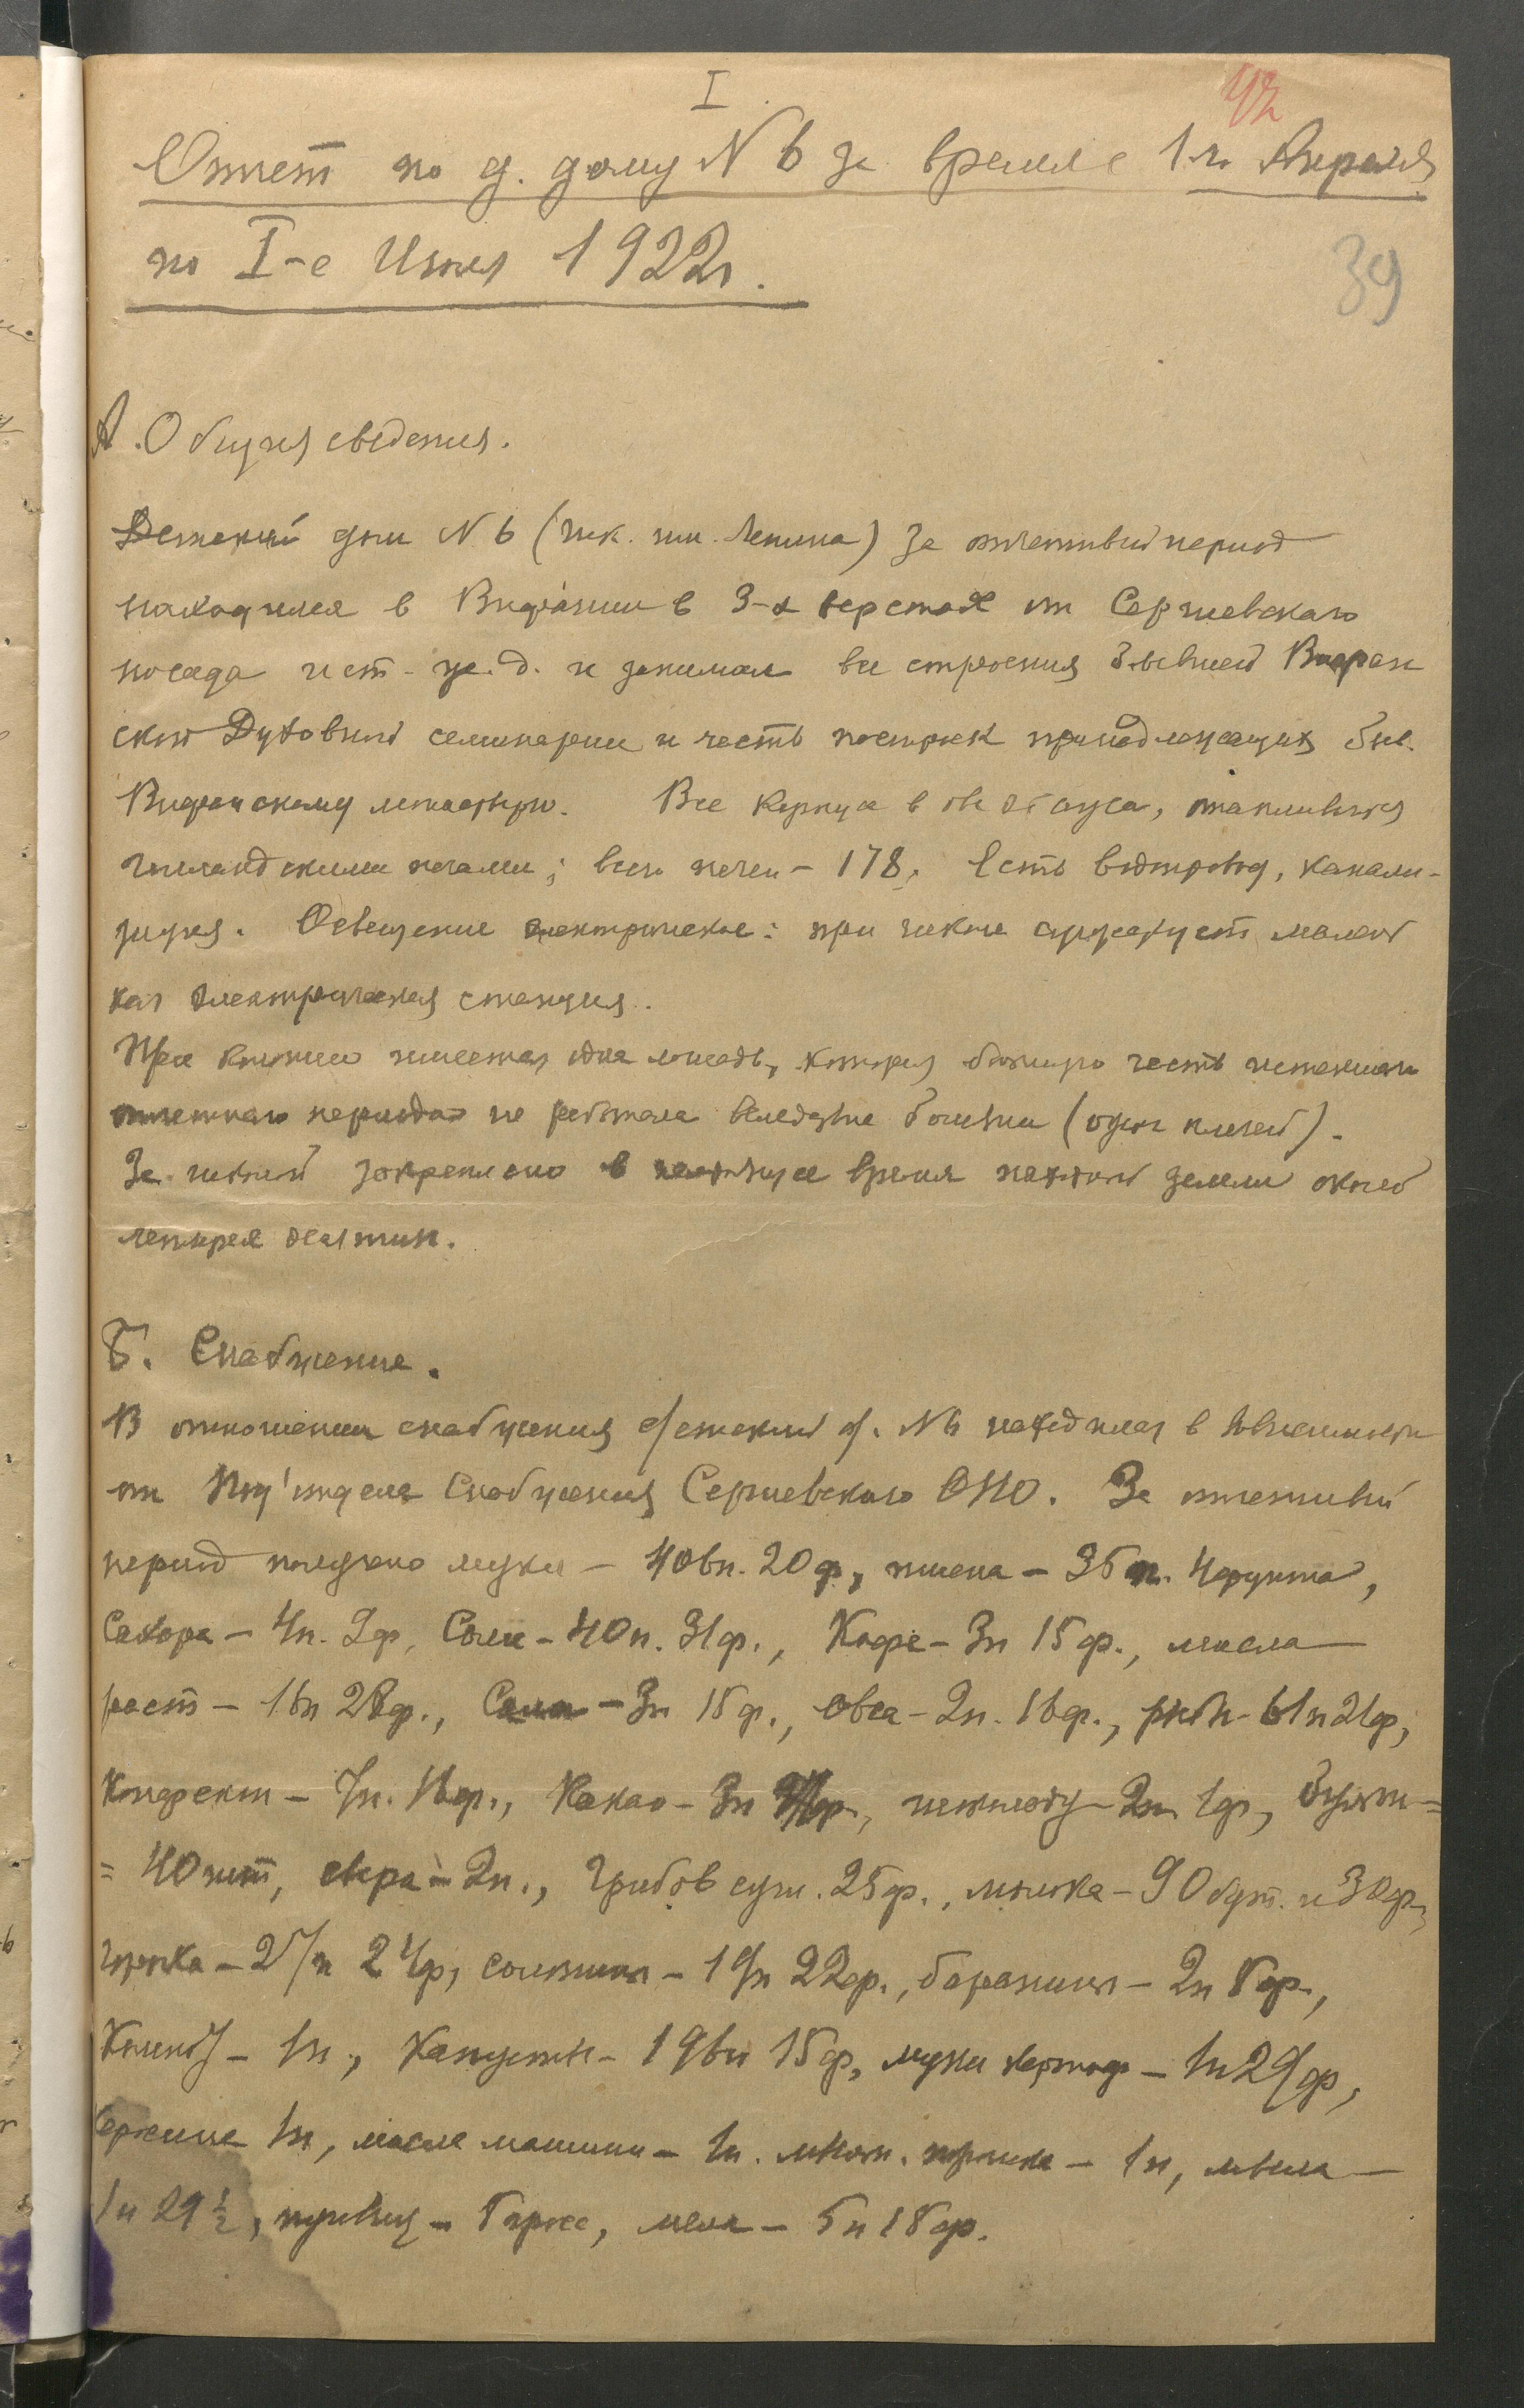 I
42
Отчет по д. дому N 6 за время с 1-го Апреля
по I-е Июля 1922г.
39
А. Общия сведения.
Детский дом N 6 (шк. им. Ленина) за отчетный период
находился в Вифании в 3-х верстах от Сергиевского
посада и ст. ж.д. и занимал все строения бывшей Вифан
ской Духовной семинарии и часть построек принадлежащих быв.
Вифанскому монастырю. Все корпуса в два этажа, отапливаются
голландскими печами; всех печей - 178. Есть водопровод, канали-
зация. Освещение электрическое: при школе существует малень
кая электрическая станция.
При колонии имеется одна лошадь, которая большую часть истекшего
отчетного периода не работала вследствие болезни (ожог плечей).
За школой закреплено в настоящее время пахотной земли около
четырех десятин.
Б. Снабжение.
В отношении снабжения детский д. N 6 находился в зависимости
от Под'отдела Снабжения Сергиевского ОНО. За отчетный
период получено муки - 406п. 20ф., пшена - 35п. 4фунта,
Сахара - 4п. 2ф, Соли - 40п. 31ф., Кофе - 3п 15ф., масла
раст - 16п 28ф., Сала - 3п 15ф., овса - 2п. 16ф., рыбы - 61п 21ф,
Конфект - 7п. 16ф., Какао - 3п шоколаду - 2п 1ф,
= 40 шт, сыра - 2п., Грибов суш. 25ф., молока - 90 бут. и 30ф.,
гороха - 27п 24ф, солонины - 19п 22ф., баранины - 2п 5ф.,
- 1п, Капусты - 196п 15ф, муки картоф - 1п 29ф,
Керосина 1п, масла машин - 1п. порошка - 1п, мыла -
1п 29½, пуговиц - мела - 5п 18ф.